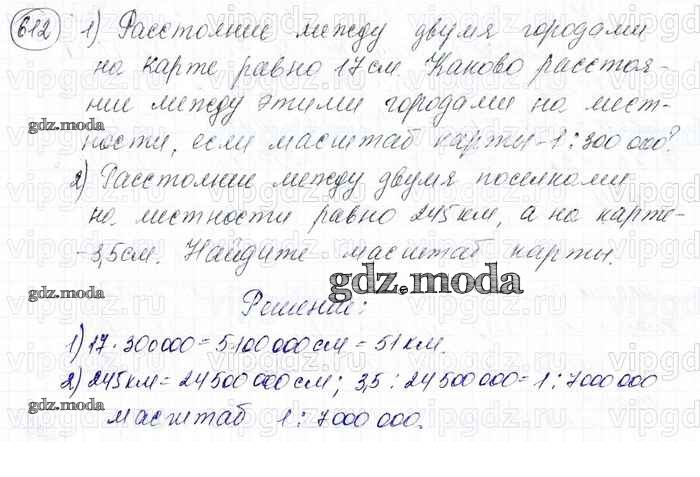 612 1) Расстояние между двумя городами
на карте равно 17 см. Каково расстоя-
ние между этими городами на мест-
ности, если масштаб карты - 1 : 300 000?
2) Расстояние между двумя поселками
на местности равно 245 км, а на карте -
- 3,5 см. Найдите масштаб карты.
Решение:
1) 17 · 300000 = 5100000 см = 51 км.
2) 245 км = 24500000 см; 3,5 : 24500000 = 1 : 7000000
масштаб 1 : 7000000.
gdz.moda
gdz.moda
gdz.moda
gdz.moda
gdz.moda